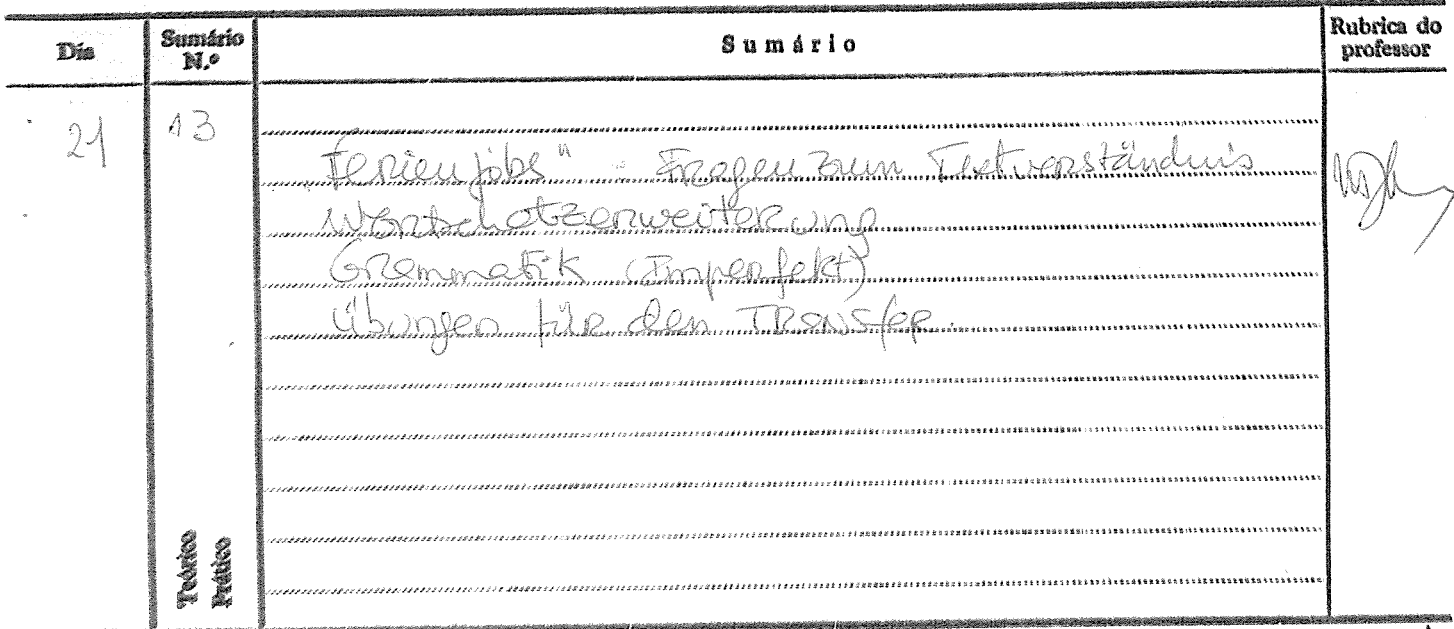 Dia Sumário N.º Sumário Rubrica do professor
21 13
Ferienjobs" - Fragen zum Textverständnis
Wortschatzerweiterung
Grammatik (Imperfekt)
Übungen für den Transfer.
Teórico
Prático